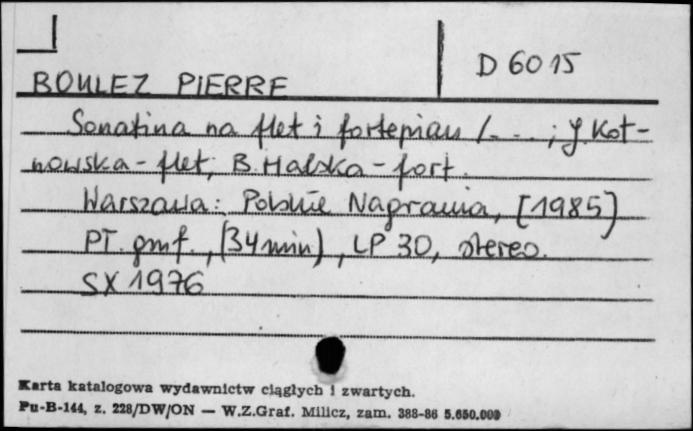 D 6015
BOULEZ PIERRE
Sonatina na flet i fortepian / - - - ; J. Kot-
nowska - flet; B. Halska - fort.
Warszawa : Polskie Nagrania, [1985]
PT. gmf., (34 min), LP 30, stereo.
SX 1976
Karta katalogowa wydawnictw ciągłych i zwartych.
Pu-B-144, z. 228/DW/ON — W.Z.Graf. Milicz, zam. 388-86 5.650.000